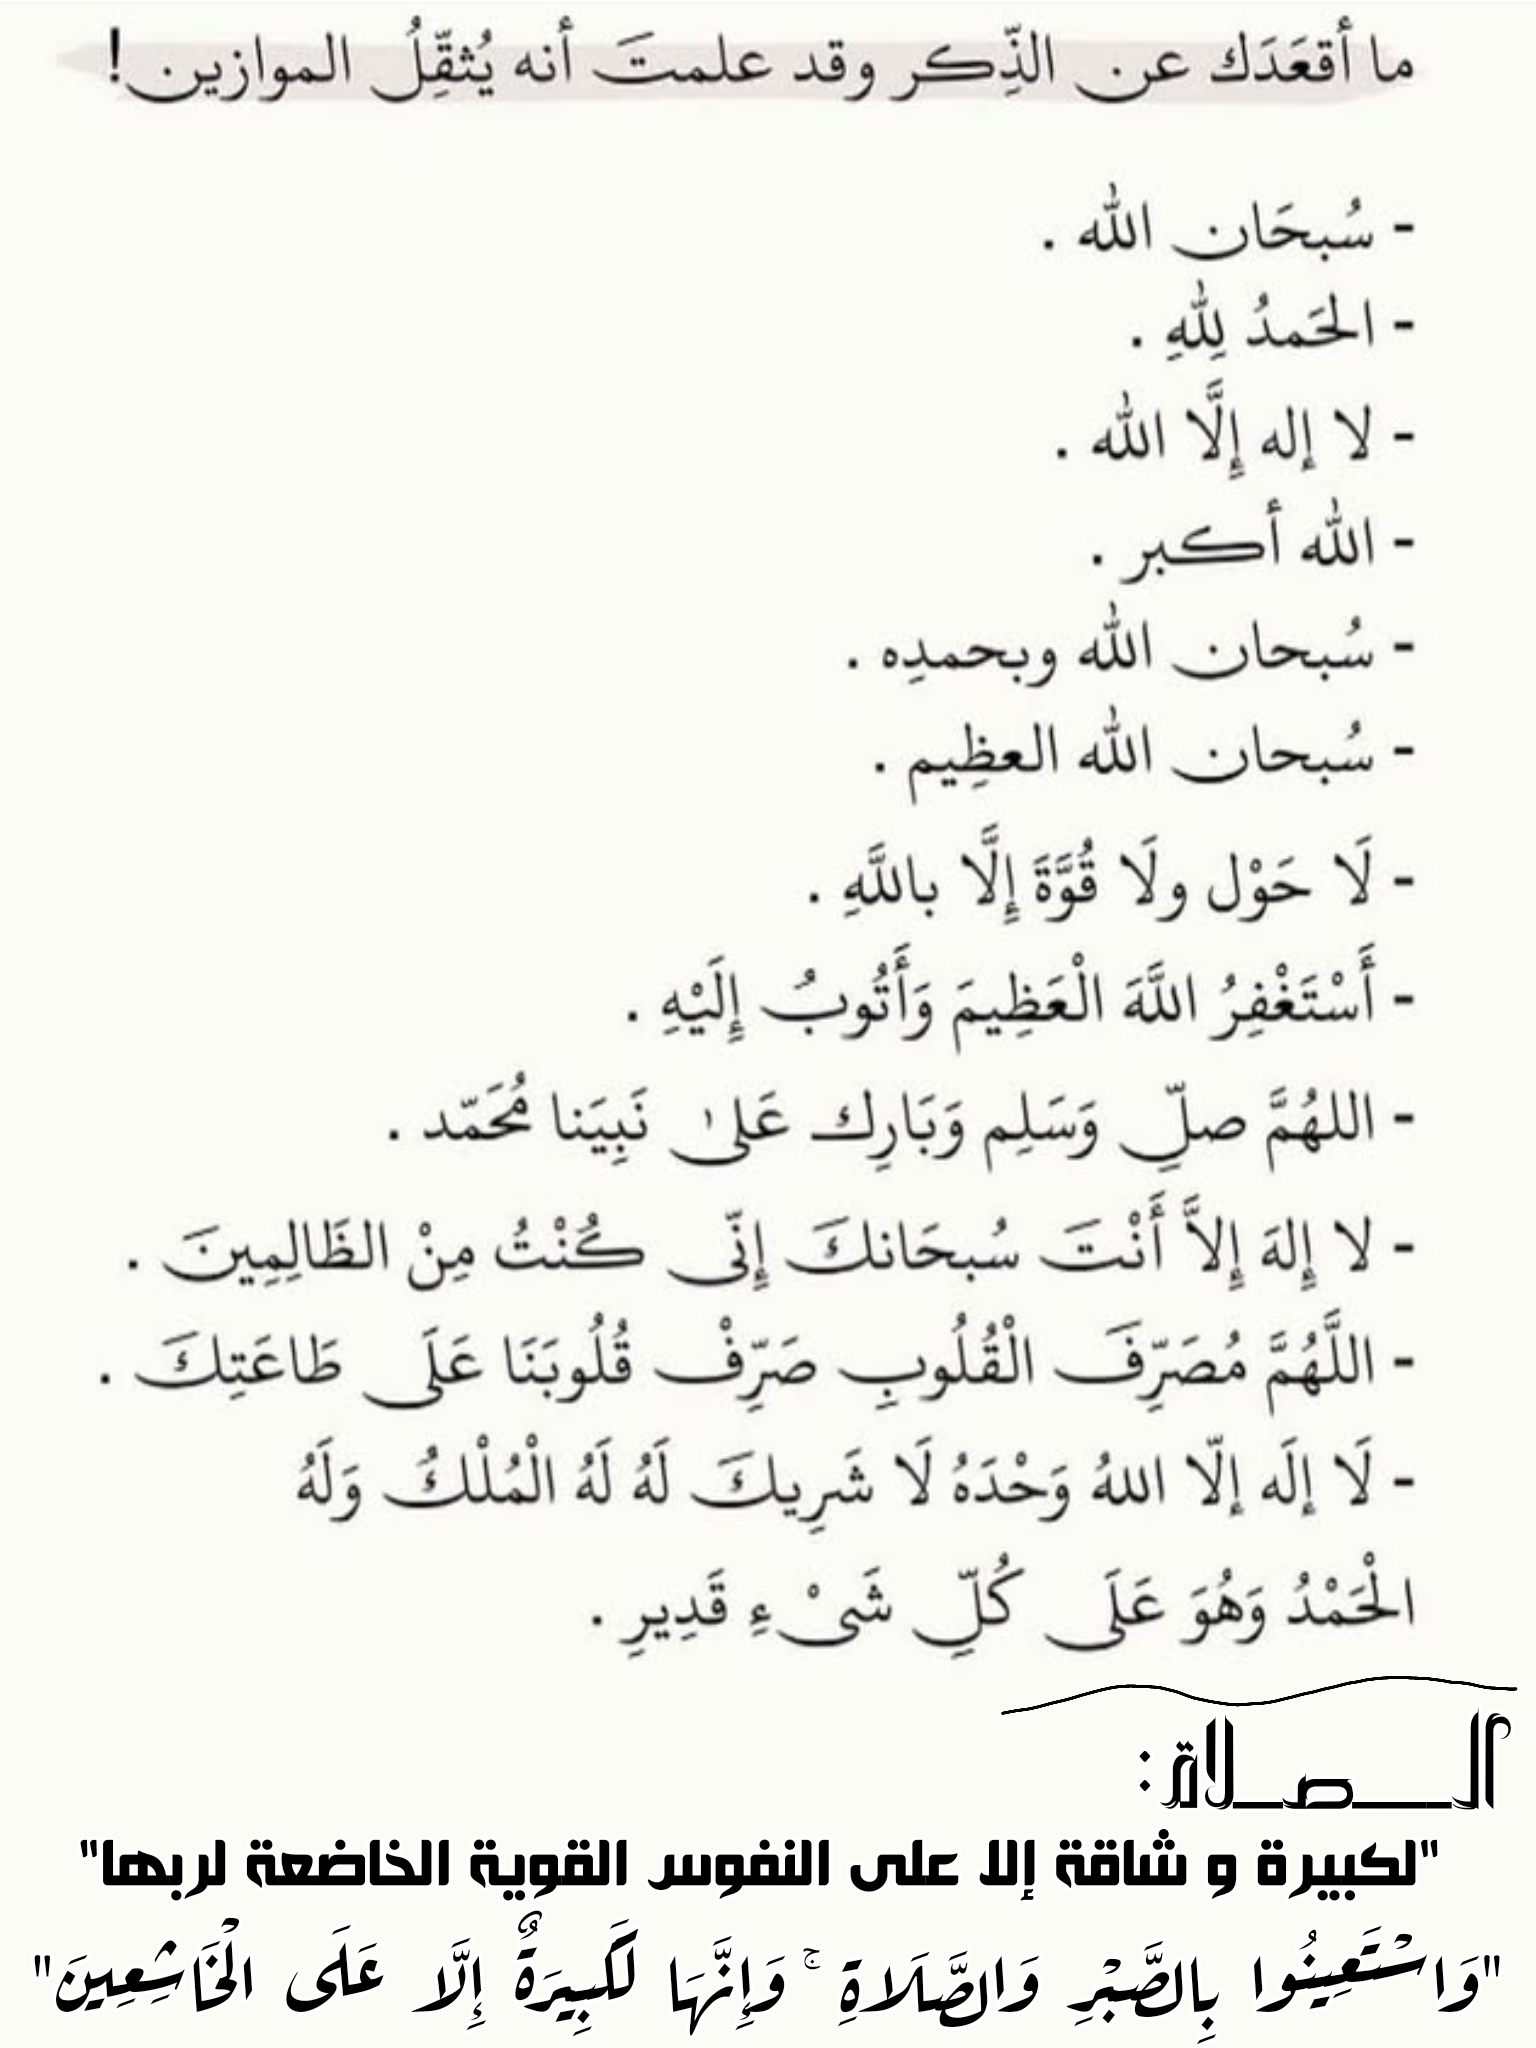 ما أقعَدَك عن الذِّكر وقد علمتَ أنه يُثقِّلُ الموازين !
- سُبحَان الله .
- الحَمدُ لِلّٰهِ .
- لا إله إِلَّا الله .
- الله أكبر .
- سُبحان الله وبحمدِه .
- سُبحان الله العظِيم .
- لَا حَوْل ولَا قُوَّةَ إِلَّا باللَّهِ .
- أَسْتَغْفِرُ اللَّهَ الْعَظِيمَ وَأَتُوبُ إِلَيْهِ .
- اللهُمَّ صلِّ وَسَلِم وَبَارِك عَلىٰ نَبِيَنا مُحَمّد .
- لا إِلهَ إِلاَّ أَنْتَ سُبحَانكَ إِنّى كُنْتُ مِنْ الظَالِمِينَ .
- اللَّهُمَّ مُصَرِّفَ الْقُلُوبِ صَرِّفْ قُلُوبَنَا عَلَى طَاعَتِكَ .
- لَا إلَه إلّا اللهُ وَحْدَهُ لَا شَرِيكَ لَهُ لَهُ الْمُلْكُ وَلَهُ
الْحَمْدُ وَهُوَ عَلَى كُلِّ شَىْءِ قَدِيرِ .
الـــصــلاة :
"لكبيرة و شاقة إلا على النفوس القوية الخاضعة لربها"
"وَاسْتَعِينُوا بِالصَّبْرِ وَالصَّلَاةِ ۚ وَإِنَّهَا لَكَبِيرَةٌ إِلَّا عَلَى الْخَاشِعِينَ"